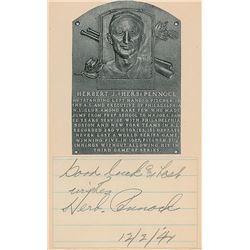 HERBERT J. (HERB) PENNOCK
OUTSTANDING LEFT HANDED PITCHER IN
THE A.L. AND EXECUTIVE OF PHILADELPHIA
N.L. CLUB. AMONG RARE FEW WHO MADE
JUMP FROM PREP SCHOOL TO MAJORS. SAW
22 YEARS SERVICE WITH PHILADELPHIA,
BOSTON AND NEW YORK TEAMS IN A.L.
RECORDED 240 VICTORIES, 161 DEFEATS.
NEVER LOST A WORLD SERIES GAME,
WINNING FIVE. IN 1927, PITCHED 7⅓
INNINGS WITHOUT ALLOWING HIT IN
THIRD GAME OF SERIES.
Good luck & best
wishes
Herb. Pennock
12/2/44